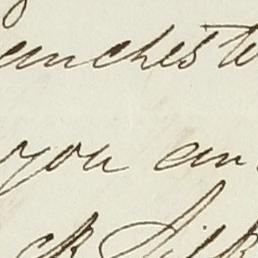 anchest
you an
ck Silk